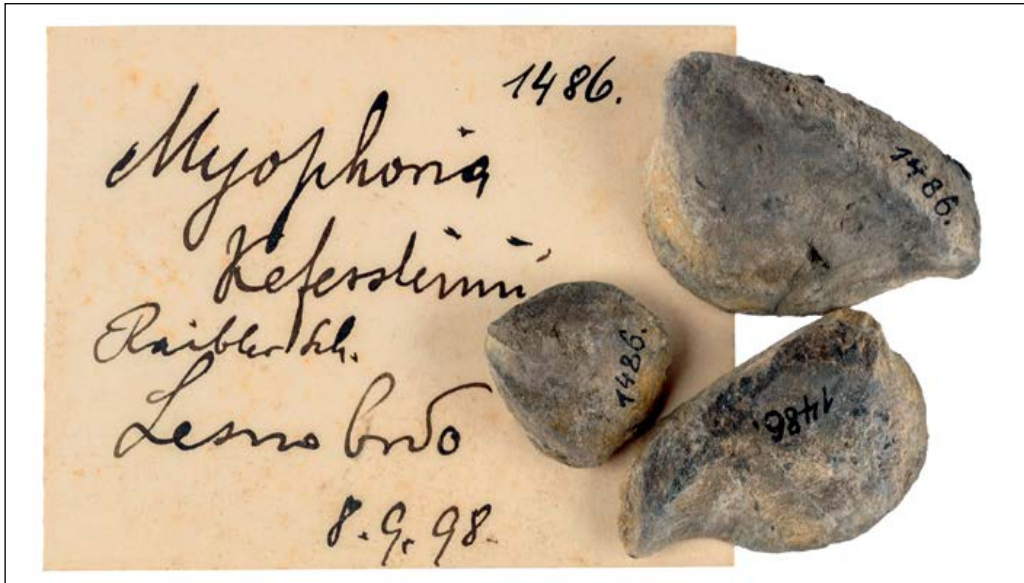 1486.
Myophoria
Kefersteinii
Raibler Sch.
Lesno brdo
8.9.98.
1486.
1486.
1486.